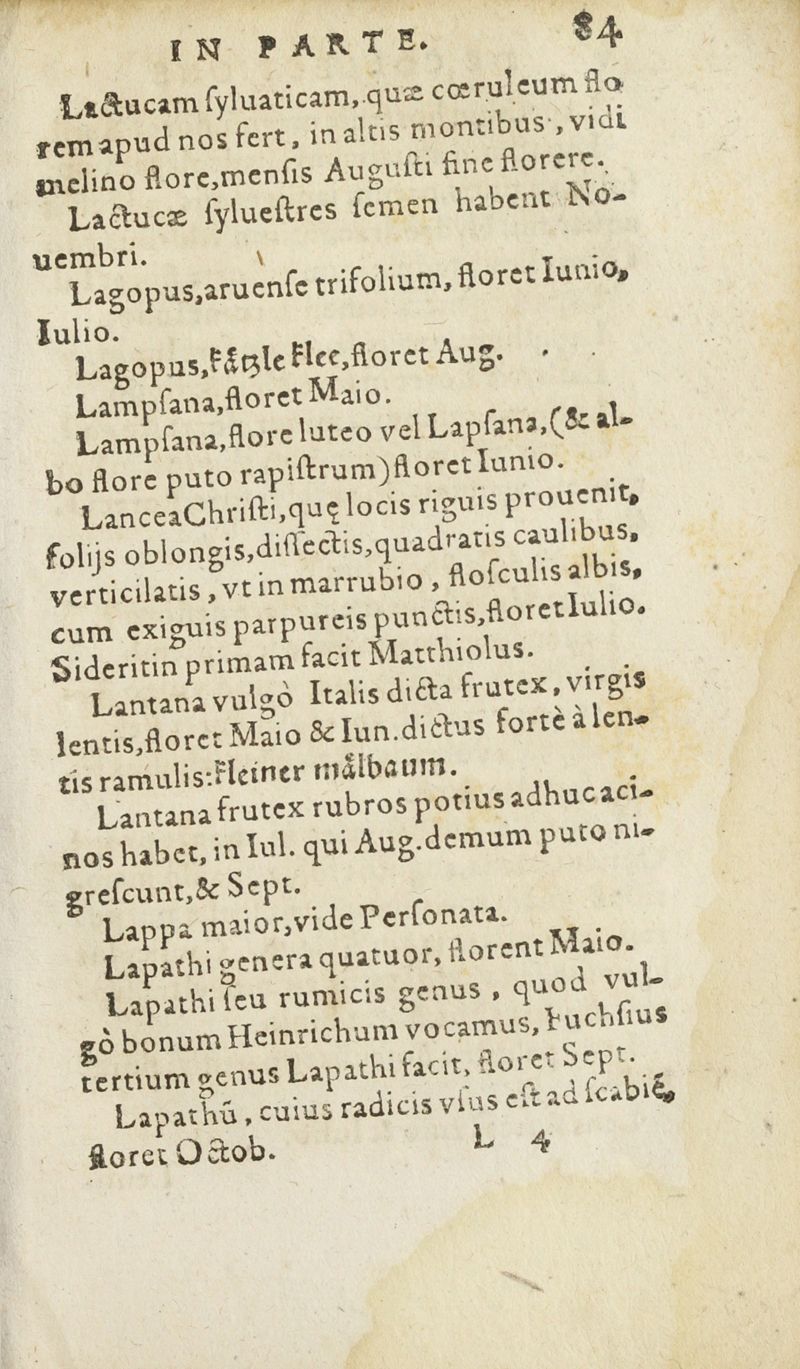 IN PARTE. 84
Lactucam ſyluaticam, quæ cœruleum flo
rem apud nos fert, in altis montibus, vidi
melino flore, menſis Auguſti fine florere.
Lactucæ ſylueſtres ſemen habent No-
uembri.
Lagopus, aruenſe trifolium, floret Iunio,
Iulio.
Lagopus, floret Aug.
Lampſana, floret Maio.
Lampſana, flore luteo vel Lapſana, (& al-
bo flore puto rapiſtrum) floret Iunio.
Lancea Chriſti, quę locis riguis prouenit,
folijs oblongis, diſſectis, quadratis caulibus,
verticilatis, vt in marrubio, floſculis albis,
cum exiguis parpureis punctis, floret Iulio.
Sideritin primam facit Matthiolus.
Lantana vulgò Italis dicta frutex, virgis
lentis, floret Maio & Iun. dictus fortè à len-
tis ramulis: Kleiner mälbaum.
Lantana frutex rubros potius adhuc aci-
nos habet, in Iul. qui Aug. demum puto ni-
greſcunt, & Sept.
Lappa maior, vide Perſonata.
Lapathi genera quatuor, florent Maio.
Lapathi ſeu rumicis genus, quod vul-
gò bonum Heinrichum vocamus, Fuchſius
tertium genus Lapathi facit, floret Sept.
Lapathū, cuius radicis vſus eſt ad ſcabiē,
floret Octob.
L 4